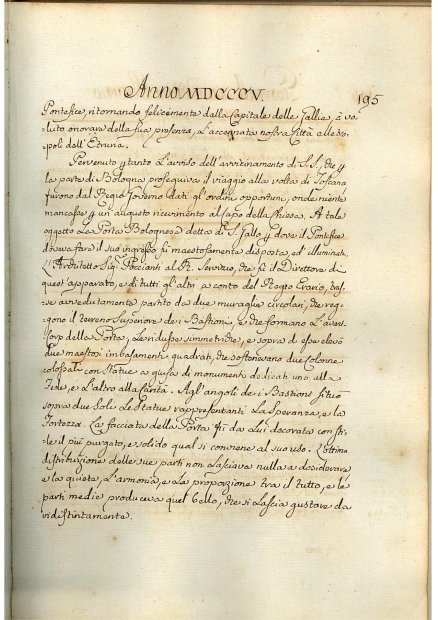 Anno MDCCCV.
195
Pontefice, ritornando felicemente dalla Capitale delle Gallie, à vo-
luto onorare della sua presenza, l'accennata nostra Città, e le
poli dell'Etruria.
Pervenuto p tanto l'avviso dell'avvicinamento di S.S., che p
la parte di Bologna proseguiva il viaggio alla volta di Toscana
furono dal Regio Governo dati gl'ordini opportuni, onde niente
mancasse p un'augusto ricevimento al Capo della Chiesa. A tale
oggetto La Porta Bolognese detta di S. Gallo p dove il Pontefice
doveva fare il suo ingresso fù maestosamente disposta, ed illuminata.
L'Architetto Sig.re Poccianti al R. Servizio, che fù il Direttore di
quest'apparato, e di tutti gl'altri a conto del Regio Erario, tras-
se avvedutamente partito da due muraglie circolari, che reg-
gono il terreno superiore de i Bastioni, e che formano l'aver-
corpo della Porta, le ridusse simmetriche, e sopra di esse elevò
due maestosi imbasamenti quadrati, che sostenevano due Colonne
colossali con Statue a guisa di monumenti dedicati uno alla
Fede, e l'altro alla Carità. Agl'angoli de i Bastioni situò
sopra due Soli le Statue rappresentanti la Speranza, e la
Fortezza. La facciata della Porta fù da Lui decorata con sti-
le il più purgato, e solido qual si conviene al suo uso. L'ottima
distribuzione delle sue parti non lasciava nulla a desiderare
e la quiete, l'armonia, e la proporzione tra il tutto, e le
parti medie produceva quel bello, che si lascia gustare da
vidistintamente.